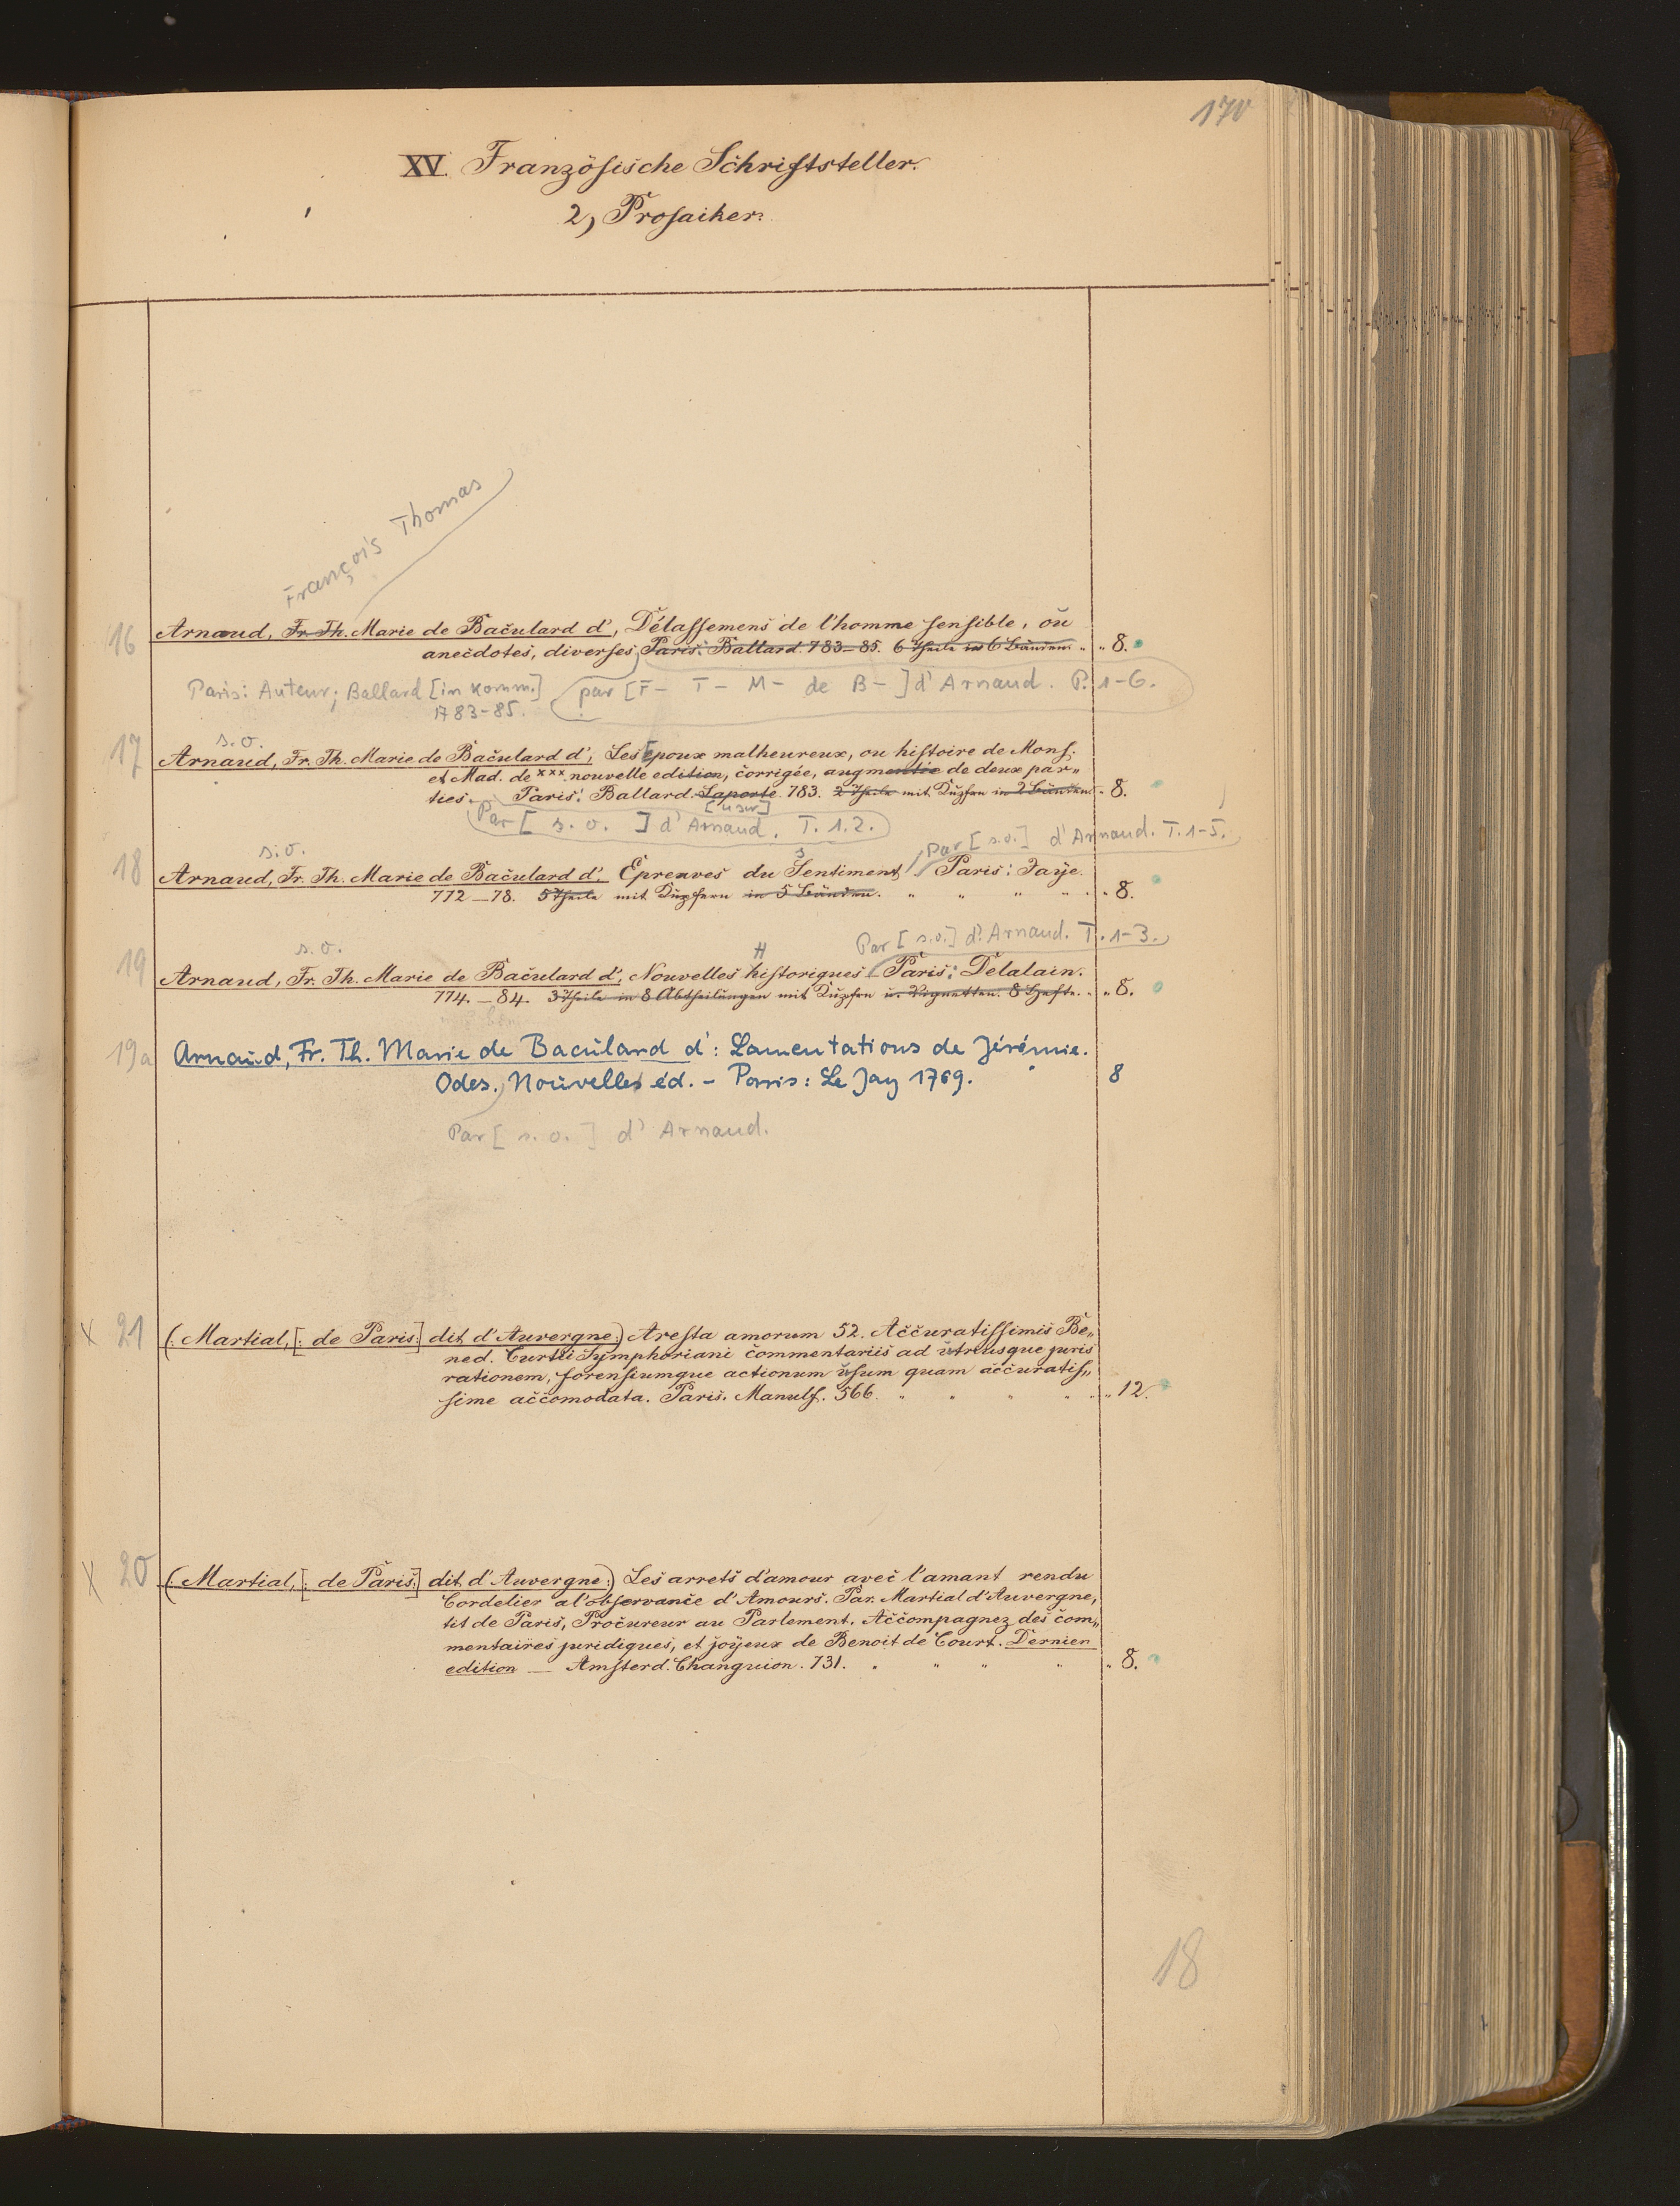 170
XV. Französische Schriftsteller.
2, Prosaiker.
François Thomas
16 Arnaud, Fr. Th. Marie de Baculard d', Délassemens de l'homme sensible, ou
anecdotes, diverses, Paris: Ballard. 783–85. 6 Theile in 6 Bänden. „ „ 8.
Paris: Auteur; Ballard [in Komm.] par [F– T– M– de B–] d'Arnaud. P. 1–6.
1783–85.
s. o.
17 Arnaud, Fr. Th. Marie de Baculard d', Les Epoux malheureux, ou histoire de Mons.
et Mad. de xxx. nouvelle edition, corrigée, augmentée de deux par„
ties. Paris: Ballard. Laporte. 783. 2 Theile mit Kupfern in 2 Bänden. „ 8.
[usw]
Par [ s. o. ] d'Arnaud. T. 1.2.
Par [s.o.] d'Arnaud. T. 1–5.
s. o. s
18 Arnaud, Fr. Th. Marie de Baculard d'. Epreuves du Sentiment. Paris: Jaye.
772–78. 5 Theile mit Kupfern in 5 Bänden. „ „ „ „ „ 8.
Par [s.o.] d'Arnaud. T. 1–3.
s. o. H
19 Arnaud, Fr. Th. Marie de Baculard d', Nouvelles historiques. Paris: Delalain.
774.–84. 3 Theile in 8 Abtheilungen mit Kupfern u. Vignetten. 8 Hefte. „ „ 8.
19a Arnaud, Fr. Th. Marie de Baculard d': Lamentations de Jérémie.
Odes. Nouvelles éd. – Paris: Le Jay 1769. 8
Par [s. o.] d'Arnaud.
x 21 (: Martial, [: de Paris:] dit d'Auvergne:) Aresta amorum 52. Accuratissimis Be„
ned. Curtii Symphoriani commentariis ad utriusque juris
rationem, forensiumque actionum usum quam accuratis„
sime accomodata. Paris. Manuls. 566. „ „ „ „ „ 12.
x 20 (: Martial, [: de Paris:] dit d'Auvergne:) Les arrets d'amour avec l'amant rendu
Cordelier a l'observance d'Amours. Par Martial d'Auvergne,
dit de Paris, Procureur au Parlement. Accompagnez des com„
mentaires juridiques, et joyeux de Benoit de Court. Dernier
edition — Amsterd. Changuion. 731. „ „ „ „ „ 8.
18